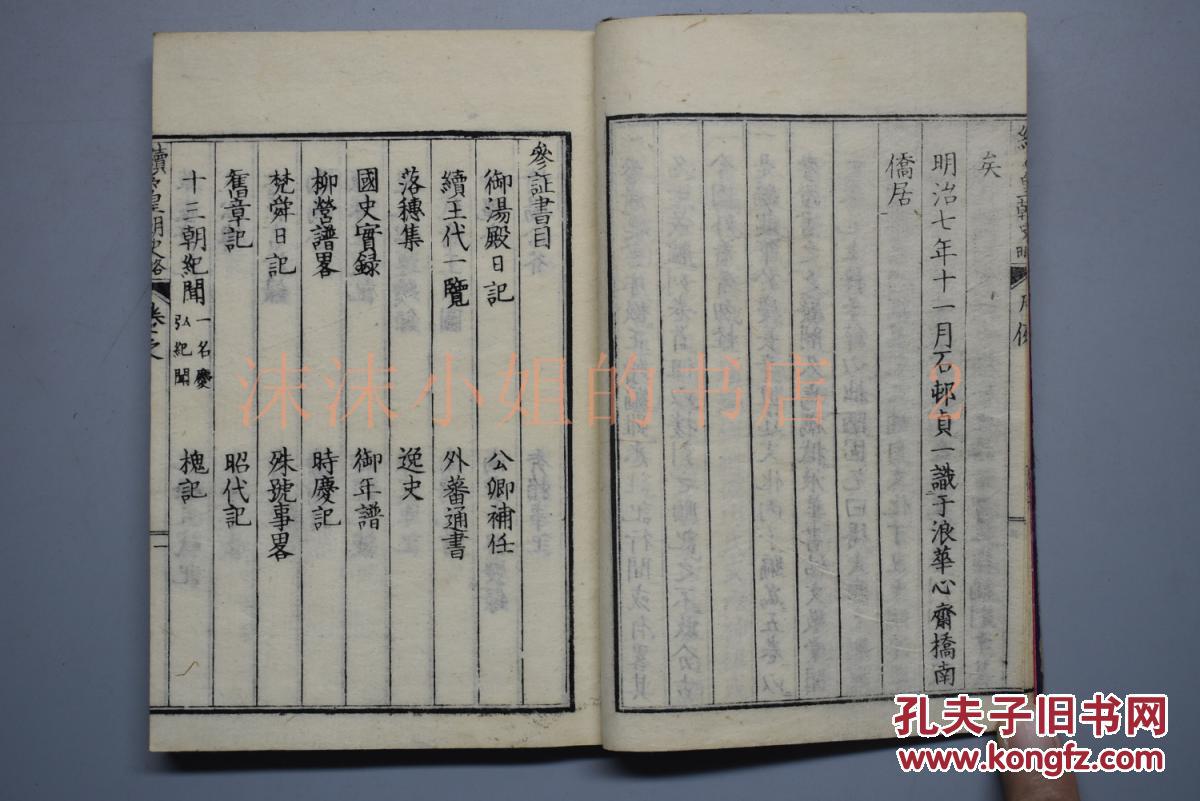 矣
明治七年十一月石邨貞一識于浪華心齋橋南
僑居
參証書目
御湯殿日記　公卿補任
續王代一覽　外蕃通書
落穗集　逸史
國史實録　御年譜
柳營譜畧　時慶記
梵舜日記　殊號事畧
舊章記　昭代記
十三朝紀聞　一名慶弘紀聞　槐記
續皇朝史略
沫沫小姐的书店 2
孔夫子旧书网
www.kongfz.com